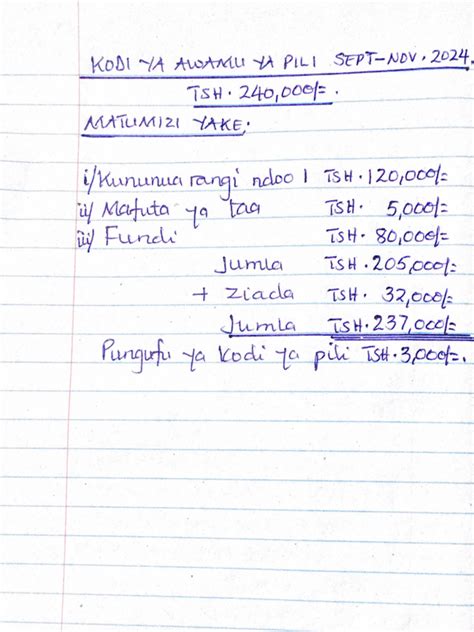 KODI YA AWAMU YA PILI SEPT-NOV. 2024.
TSH. 240,000/=.
MATUMIZI YAKE:
i/ Kununua rangi ndoo 1 TSH. 120,000/=
ii/ Mafuta ya taa TSH. 5,000/=
iii/ Fundi TSH. 80,000/=
Jumla TSH. 205,000/=
+ Ziada TSH. 32,000/=
Jumla TSH. 237,000/=
Pungufu ya kodi ya pili TSH. 3,000/=.